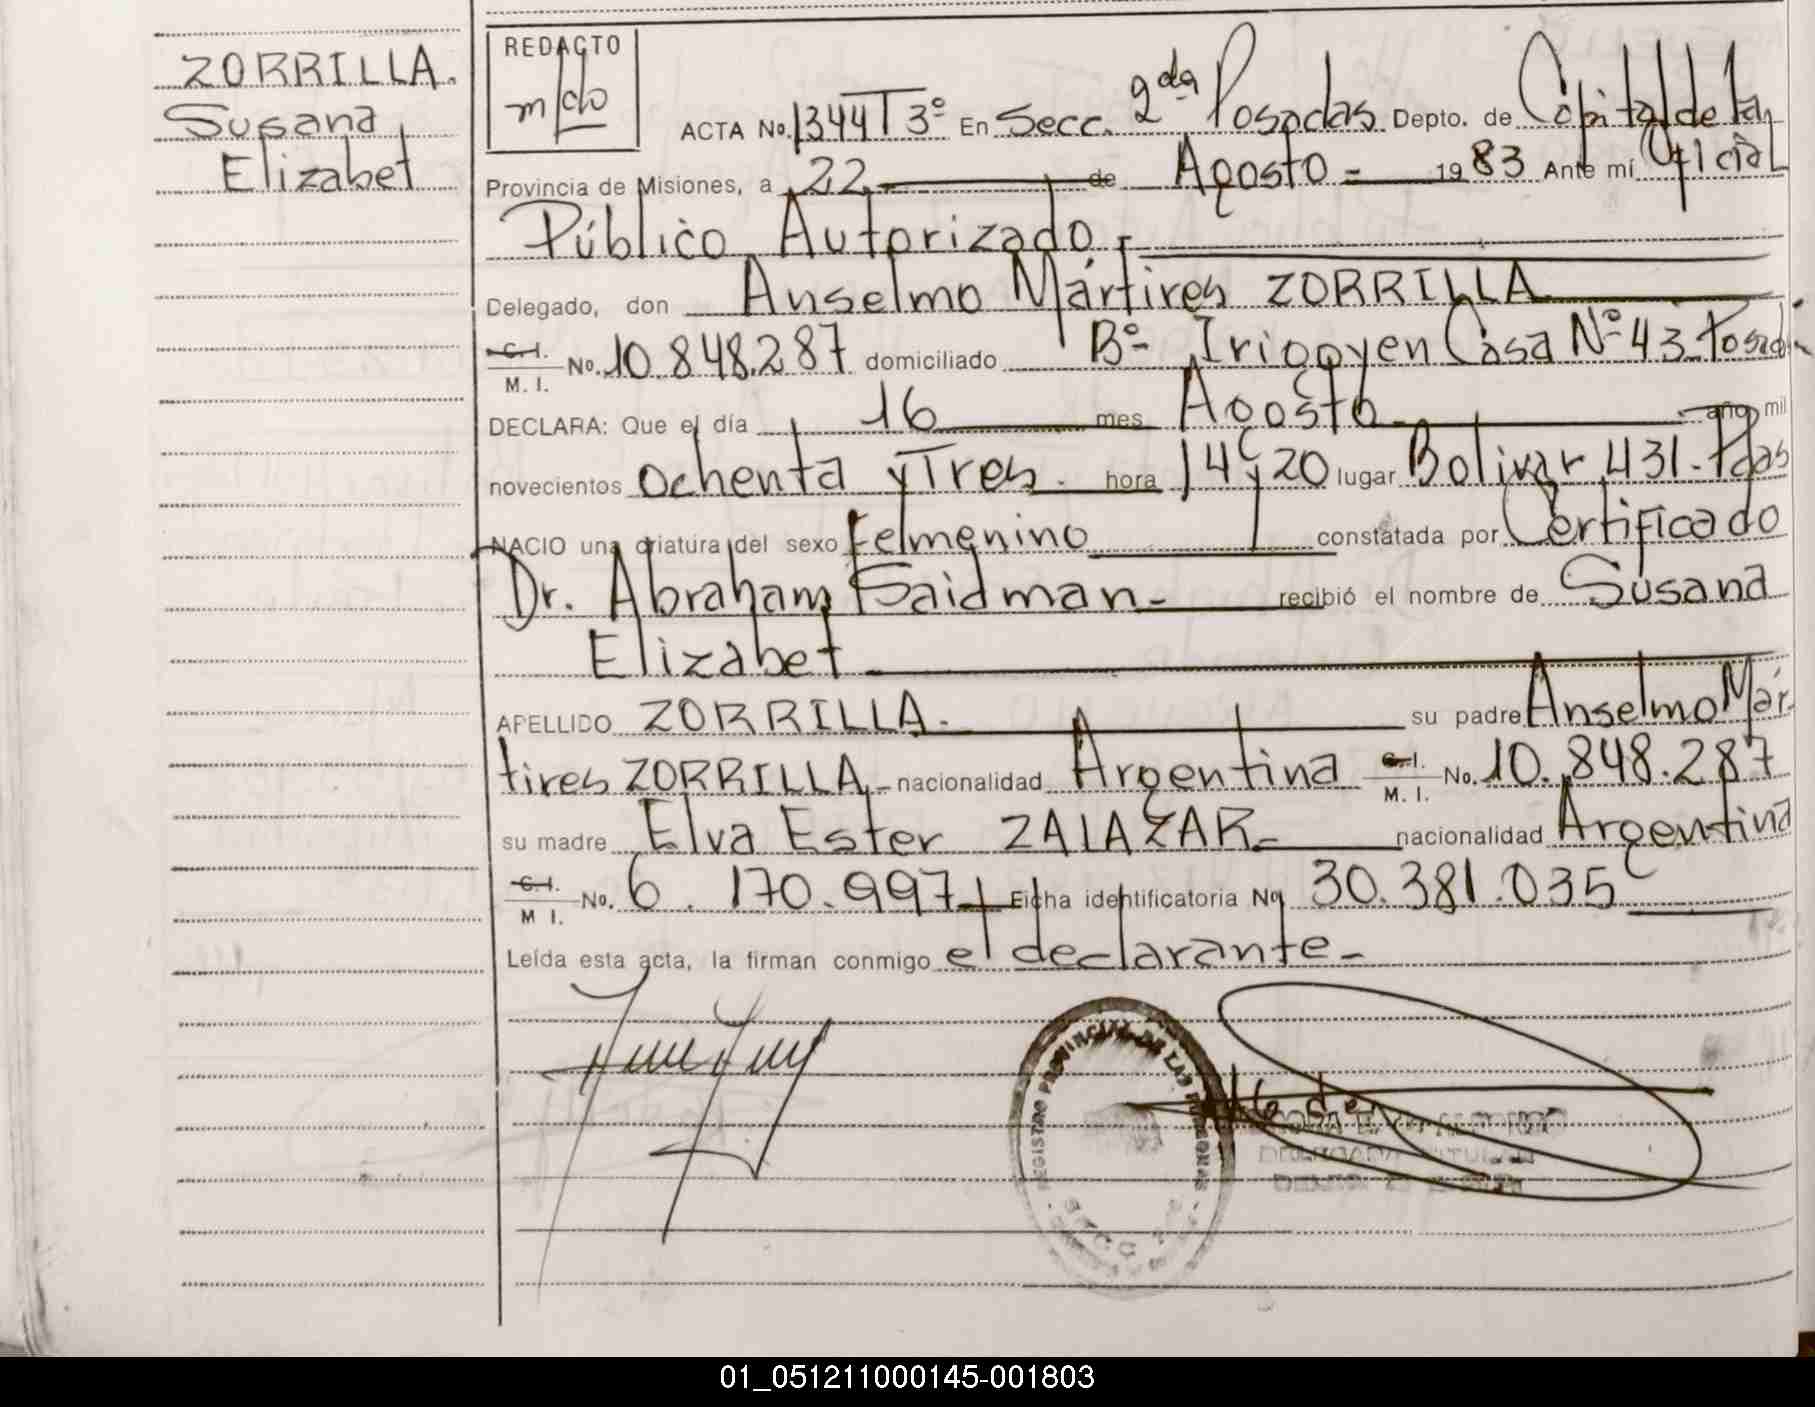 ZORRILLA.
Susana
Elizabet
REDACTO
ACTA No. 1344 T 3º En Secc. 2da Posadas Depto. de Capital de la
Provincia de Misiones, a 22 de Agosto - 1983 Ante mí Oficial
Público Autorizado -
Delegado, don Anselmo Mártires ZORRILLA
C. I. / M. I. No. 10.848.287 domiciliado Bº Irigoyen Casa Nº 43
DECLARA: Que el día 16 mes Agosto año mil
novecientos ochenta y Tres. hora 14 y 20 lugar Bolivar 431. Pdas
NACIO una criatura del sexo Femenino constatada por Certificado
Dr. Abraham Saidman - recibió el nombre de Susana
Elizabet
APELLIDO ZORRILLA. su padre Anselmo Már-
tires ZORRILLA - nacionalidad Argentina C. I. / M. I. No. 10.848.287
su madre Elva Ester ZALAZAR - nacionalidad Argentina
C. I. / M I. No. 6.170.997 Ficha identificatoria No 30.381.035
Leída esta acta, la firman conmigo el declarante -
REGISTRO PROVINCIAL DE LAS PERSONAS
01_051211000145-001803